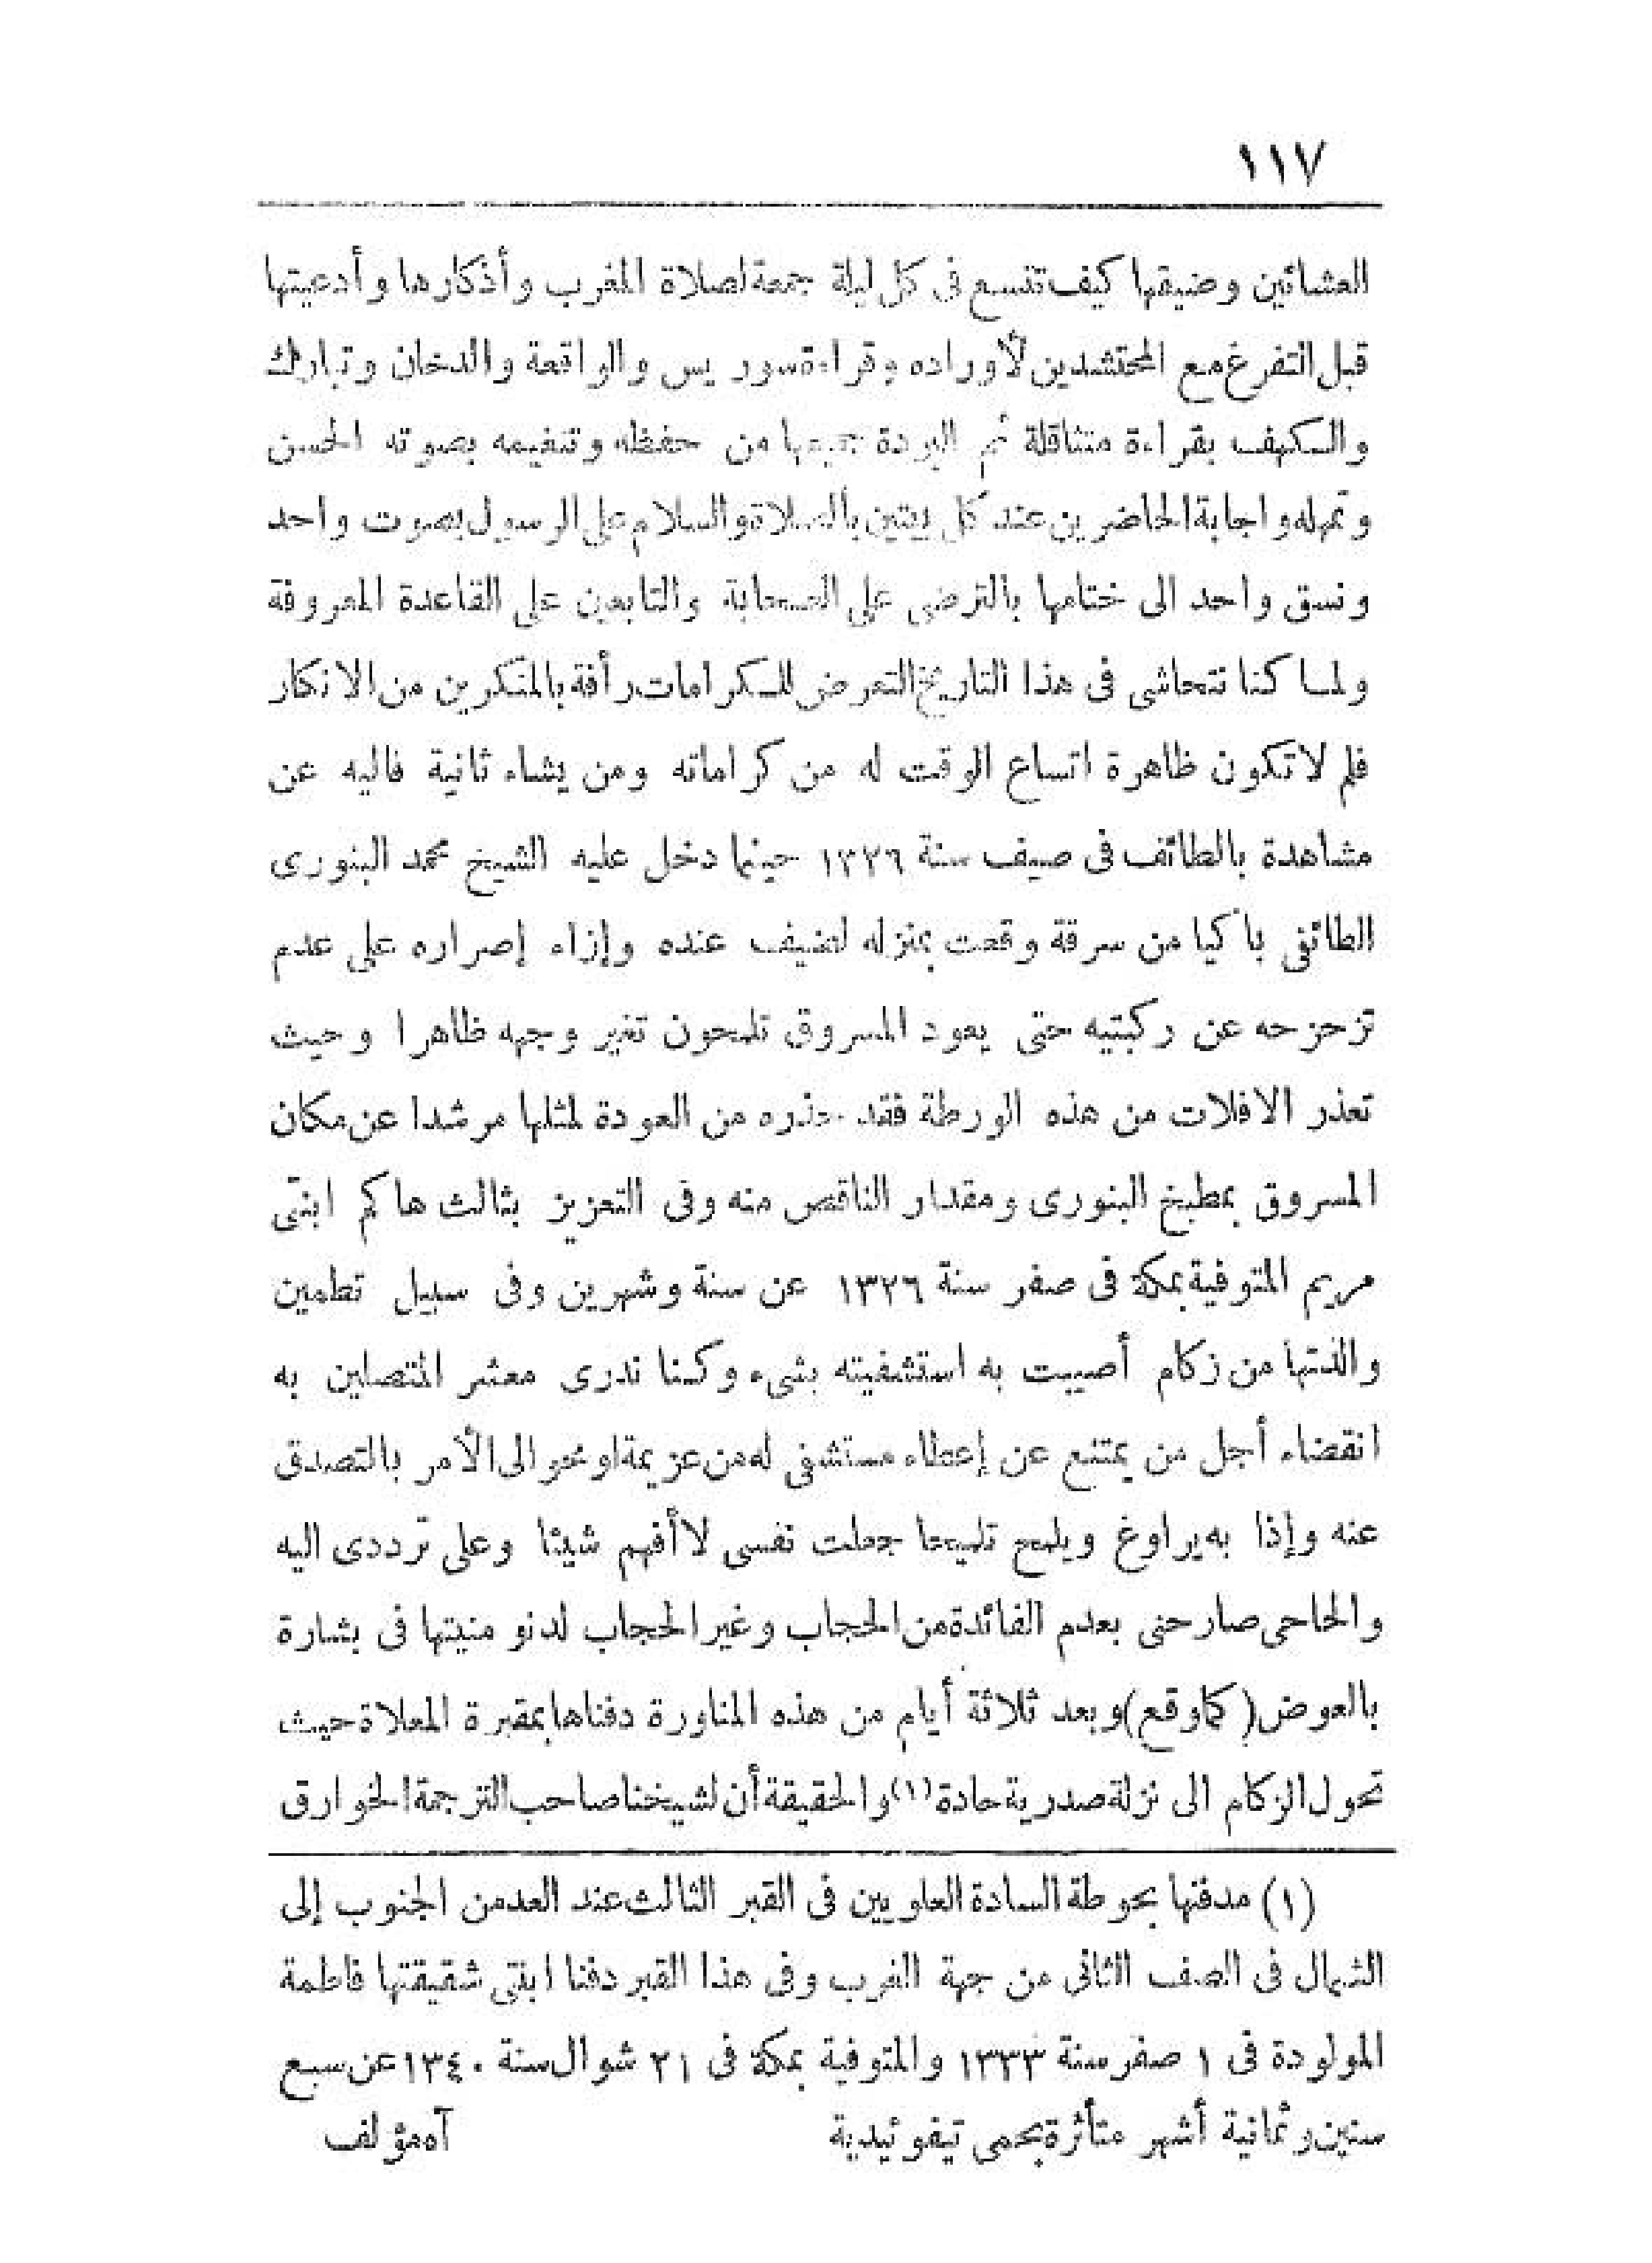 ١١٧
العشائين وضيقها كيف تتسع فى كل ليلة جمعة لصلاة المغرب وأذكارها وأدعيتها
قبل التفرغ مع المحتشدين لأوراده وقراءة سور يس والواقعة والدخان وتبارك
والكهف بقراءة متثاقلة ثم البردة جميعها من حفظه وتنغيمه بصوته الحسن
وتمهله واجابة الحاضرين عند كل بيتين بالصلاة والسلام على الرسول بصوت واحد
ونسق واحد الى ختامها بالترضى على الصحابة والتابعين على القاعدة المعروفة
ولما كنا نتحاشى فى هذا التاريخ التعرض للكرامات رأفة بالمنكرين من الانكار
فلم لا تكون ظاهرة اتساع الوقت له من كراماته ومن يشاء ثانية فاليه عن
مشاهدة بالطائف فى صيف سنة ١٣٢٦ حينما دخل عليه الشيخ محمد البنورى
الطائفى باكيا من سرقة وقعت بمنزله لضيف عنده وإزاء إصراره على عدم
تزحزحه عن ركبتيه حتى يعود المسروق تلمحون تغير وجهه ظاهرا وحيث
تعذر الافلات من هذه الورطة فقد حذره من العودة لمثلها مرشدا عن مكان
المسروق بمطبخ البنورى ومقدار الناقص منه وفى التعزيز بثالث هاكم ابنتى
مريم المتوفية بمكة فى صفر سنة ١٣٢٦ عن سنة وشهرين وفى سبيل تطمين
والدتها من زكام أصيبت به استشفيته بشىء وكنا ندرى معشر المتصلين به
انقضاء أجل من يمتنع عن إعطاء مستشفى له من عزيمة او نحو الى الأمر بالتصدق
عنه وإذا به يراوغ ويلمح تلميحا جعلت نفسى لا أفهم شيئا وعلى ترددى اليه
والحاحى صارحنى بعدم الفائدة من الحجاب وغير الحجاب لدنو منيتها فى بشارة
بالعوض (كما وقع) وبعد ثلاثة أيام من هذه المناورة دفناها بمقبرة المعلاة حيث
تحول الزكام الى نزلة صدرية حادة (١) والحقيقة أن لشيخنا صاحب الترجمة الخوارق
(١) مدفنها بحوطة السادة العلويين فى القبر الثالث عند العد من الجنوب إلى
الشمال فى الصف الثانى من جهة الغرب وفى هذا القبر دفنا ابنتى شقيقتها فاطمة
المولودة فى ١ صفر سنة ١٣٣٣ والمتوفية بمكة فى ٢١ شوال سنة ١٣٤٠ عن سبع
سنين وثمانية أشهر متأثرة بحمى تيفوئيدية آه مؤلف